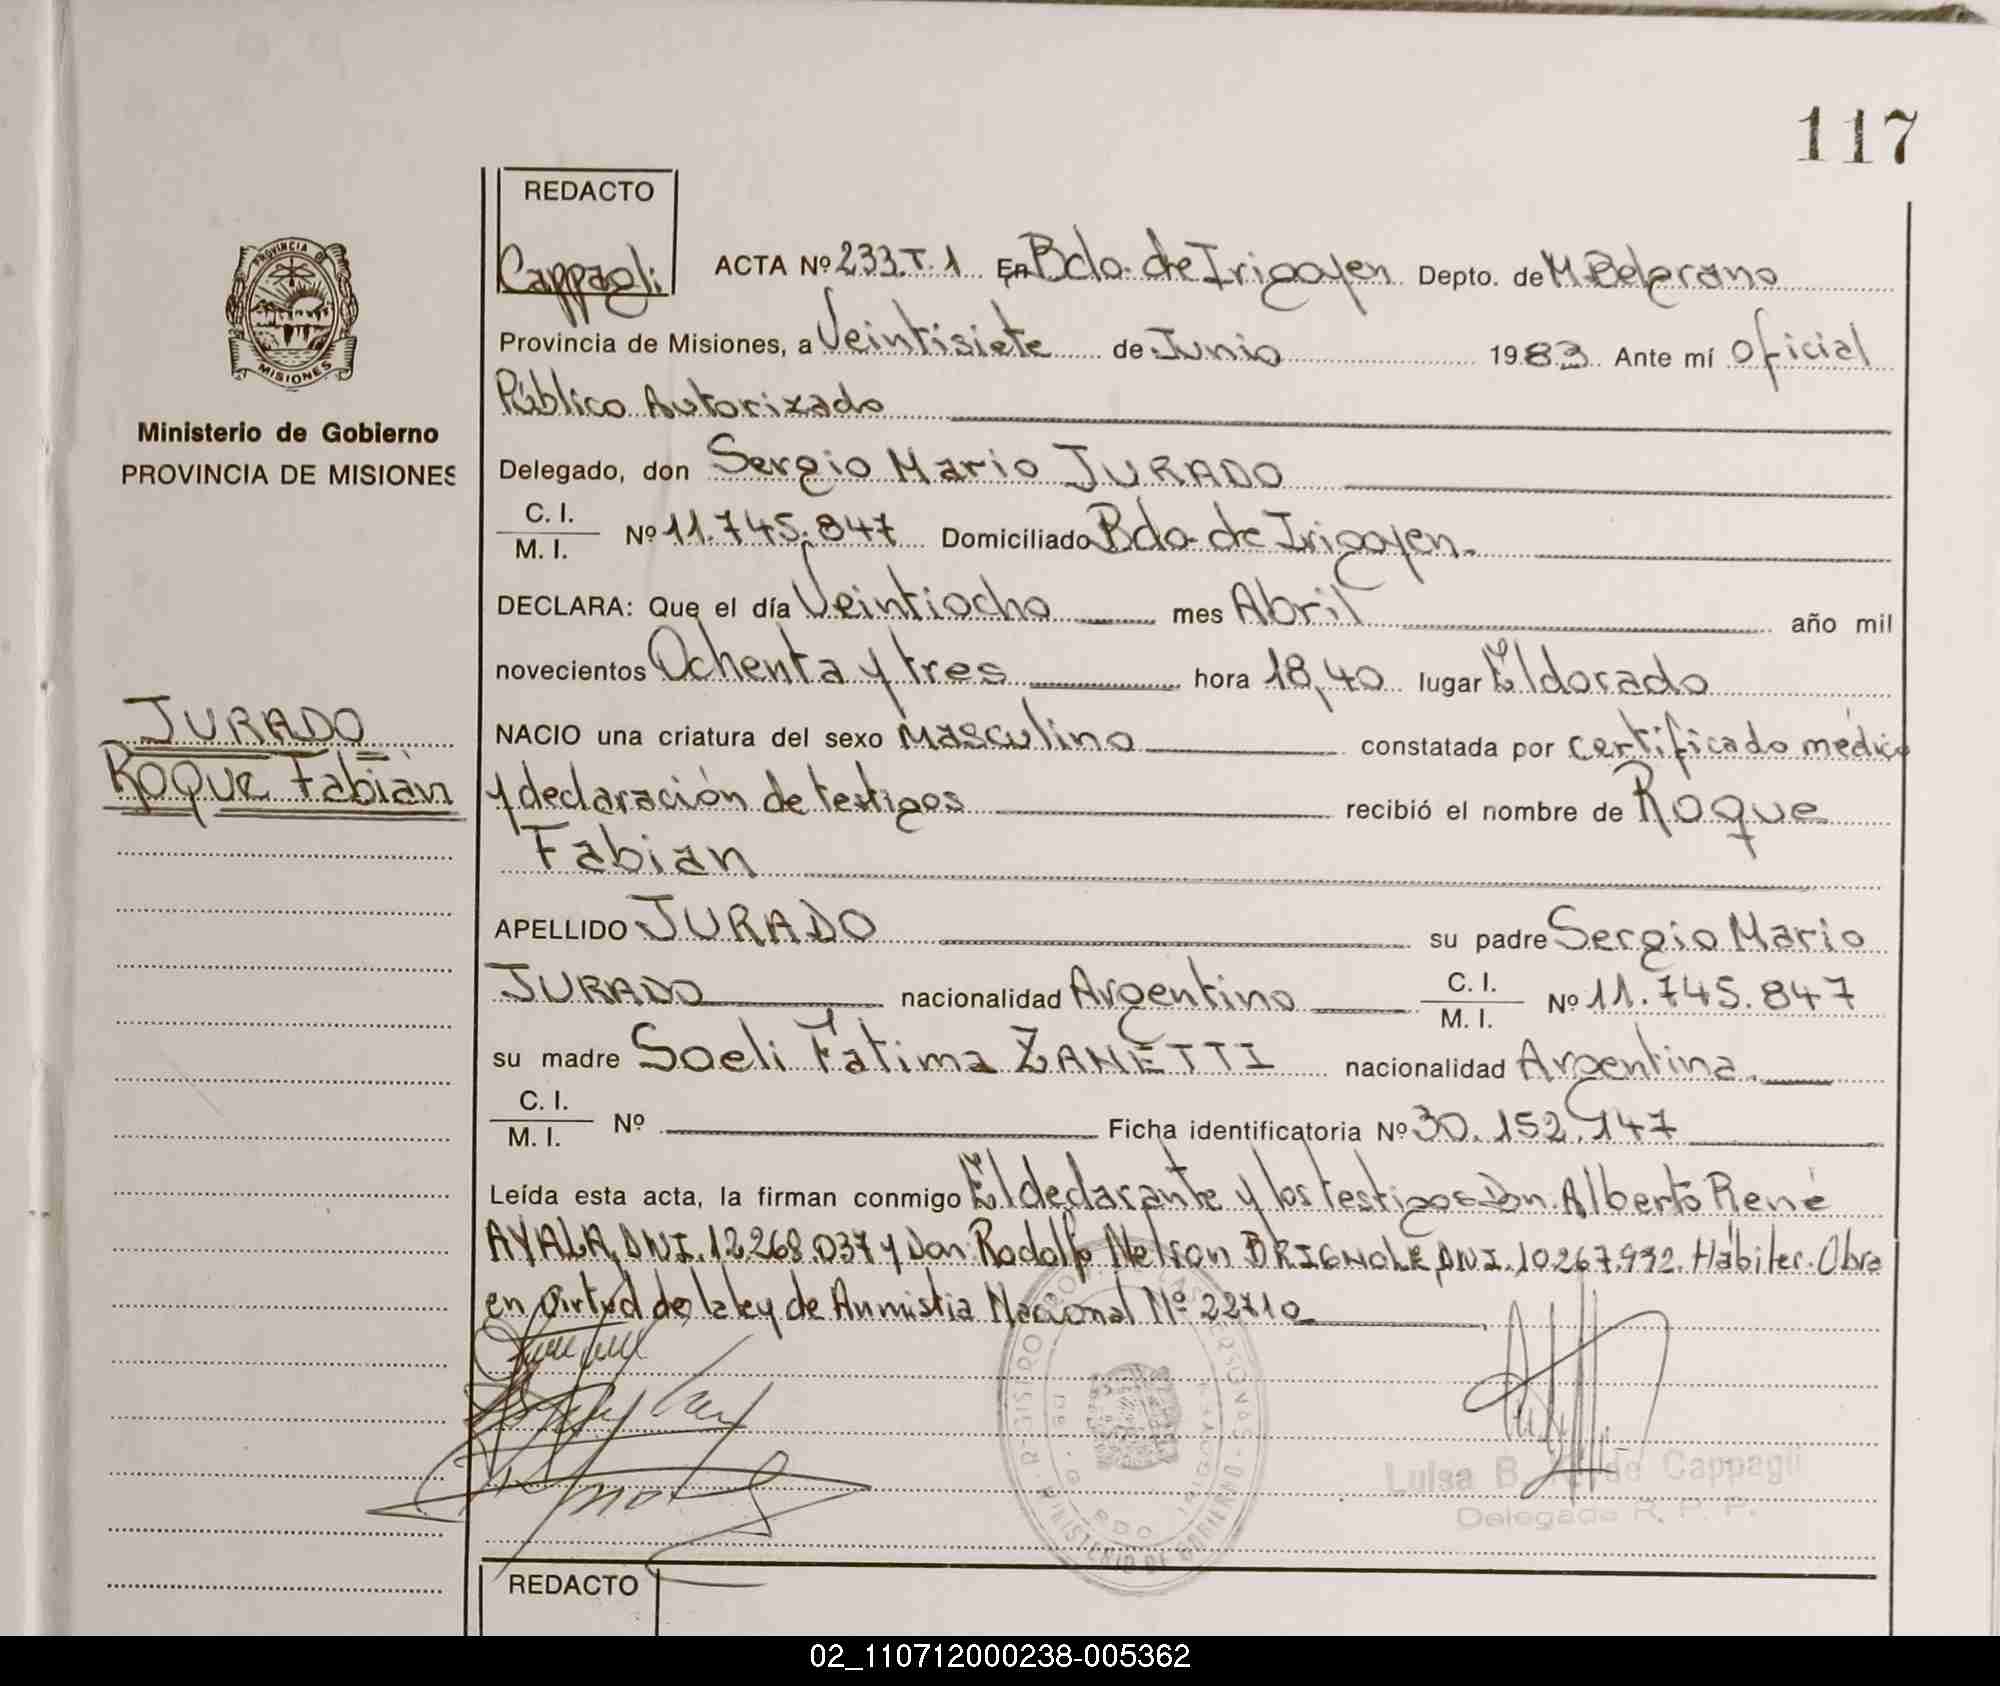 117
REDACTO
Cappagli
ACTA Nº 233.T.1 En Bdo. de Irigoyen Depto. de M. Belgrano
PROVINCIA DE MISIONES
Provincia de Misiones, a Veintisiete de Junio 1983 Ante mí Oficial
Público Autorizado
Ministerio de Gobierno
PROVINCIA DE MISIONES
Delegado, don Sergio Mario JURADO
C. I.
M. I. Nº 11.745.847 Domiciliado Bdo. de Irigoyen.
DECLARA: Que el día Veintiocho mes Abril año mil
novecientos Ochenta y tres hora 18,40 lugar Eldorado
JURADO
NACIO una criatura del sexo Masculino constatada por certificado médico
ROQUE Fabián
y declaración de testigos recibió el nombre de Roque
Fabian
APELLIDO JURADO su padre Sergio Mario
JURADO nacionalidad Argentino C. I. M. I. Nº 11.745.847
su madre Soeli Fatima ZANETTI nacionalidad Argentina.
C. I.
M. I. Nº Ficha identificatoria Nº 30.152.147
Leída esta acta, la firman conmigo El declarante y los testigos Don Alberto René
AYALA, DNI. 12.268.037 y Don Rodolfo Nelson BRIGNOLE, DNI. 10.267.992. Hábiles. Obra
en virtud de la ley de Anmistia Nacional Nº 22710
Luisa B. de Cappagli
Delegada R. P. P.
MINISTERIO DE GOBIERNO
REDACTO
02_110712000238-005362